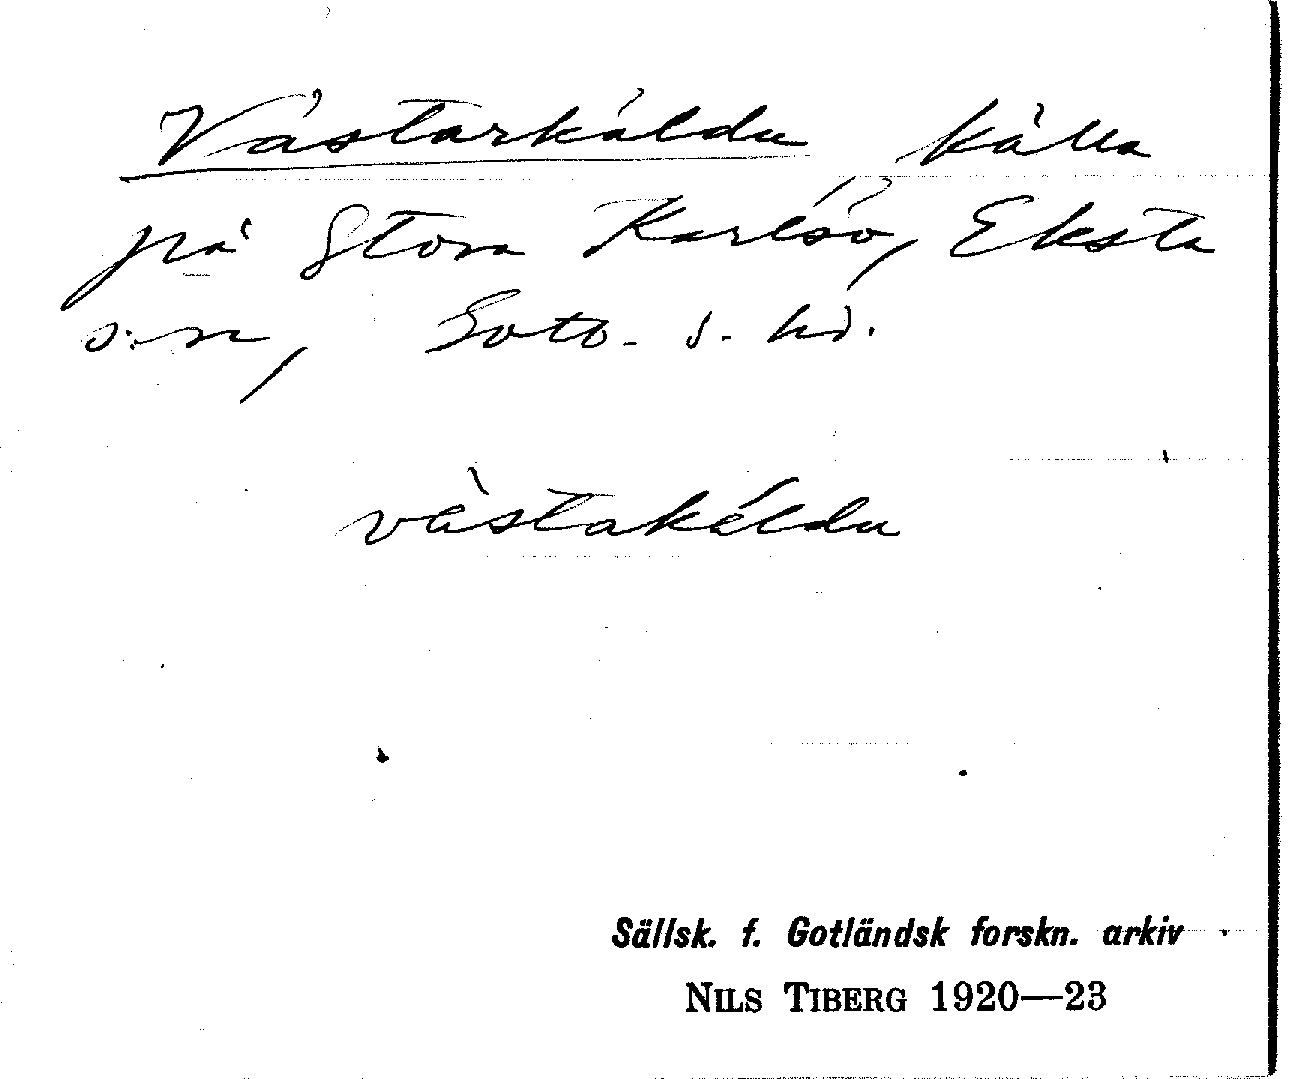 Västarkäldu källa
på Stora Karlsö, Eksta
s:n, Gotl. s. hd.
västakäldu
Sällsk. f. Gotländsk forskn. arkiv
NILS TIBERG 1920—23